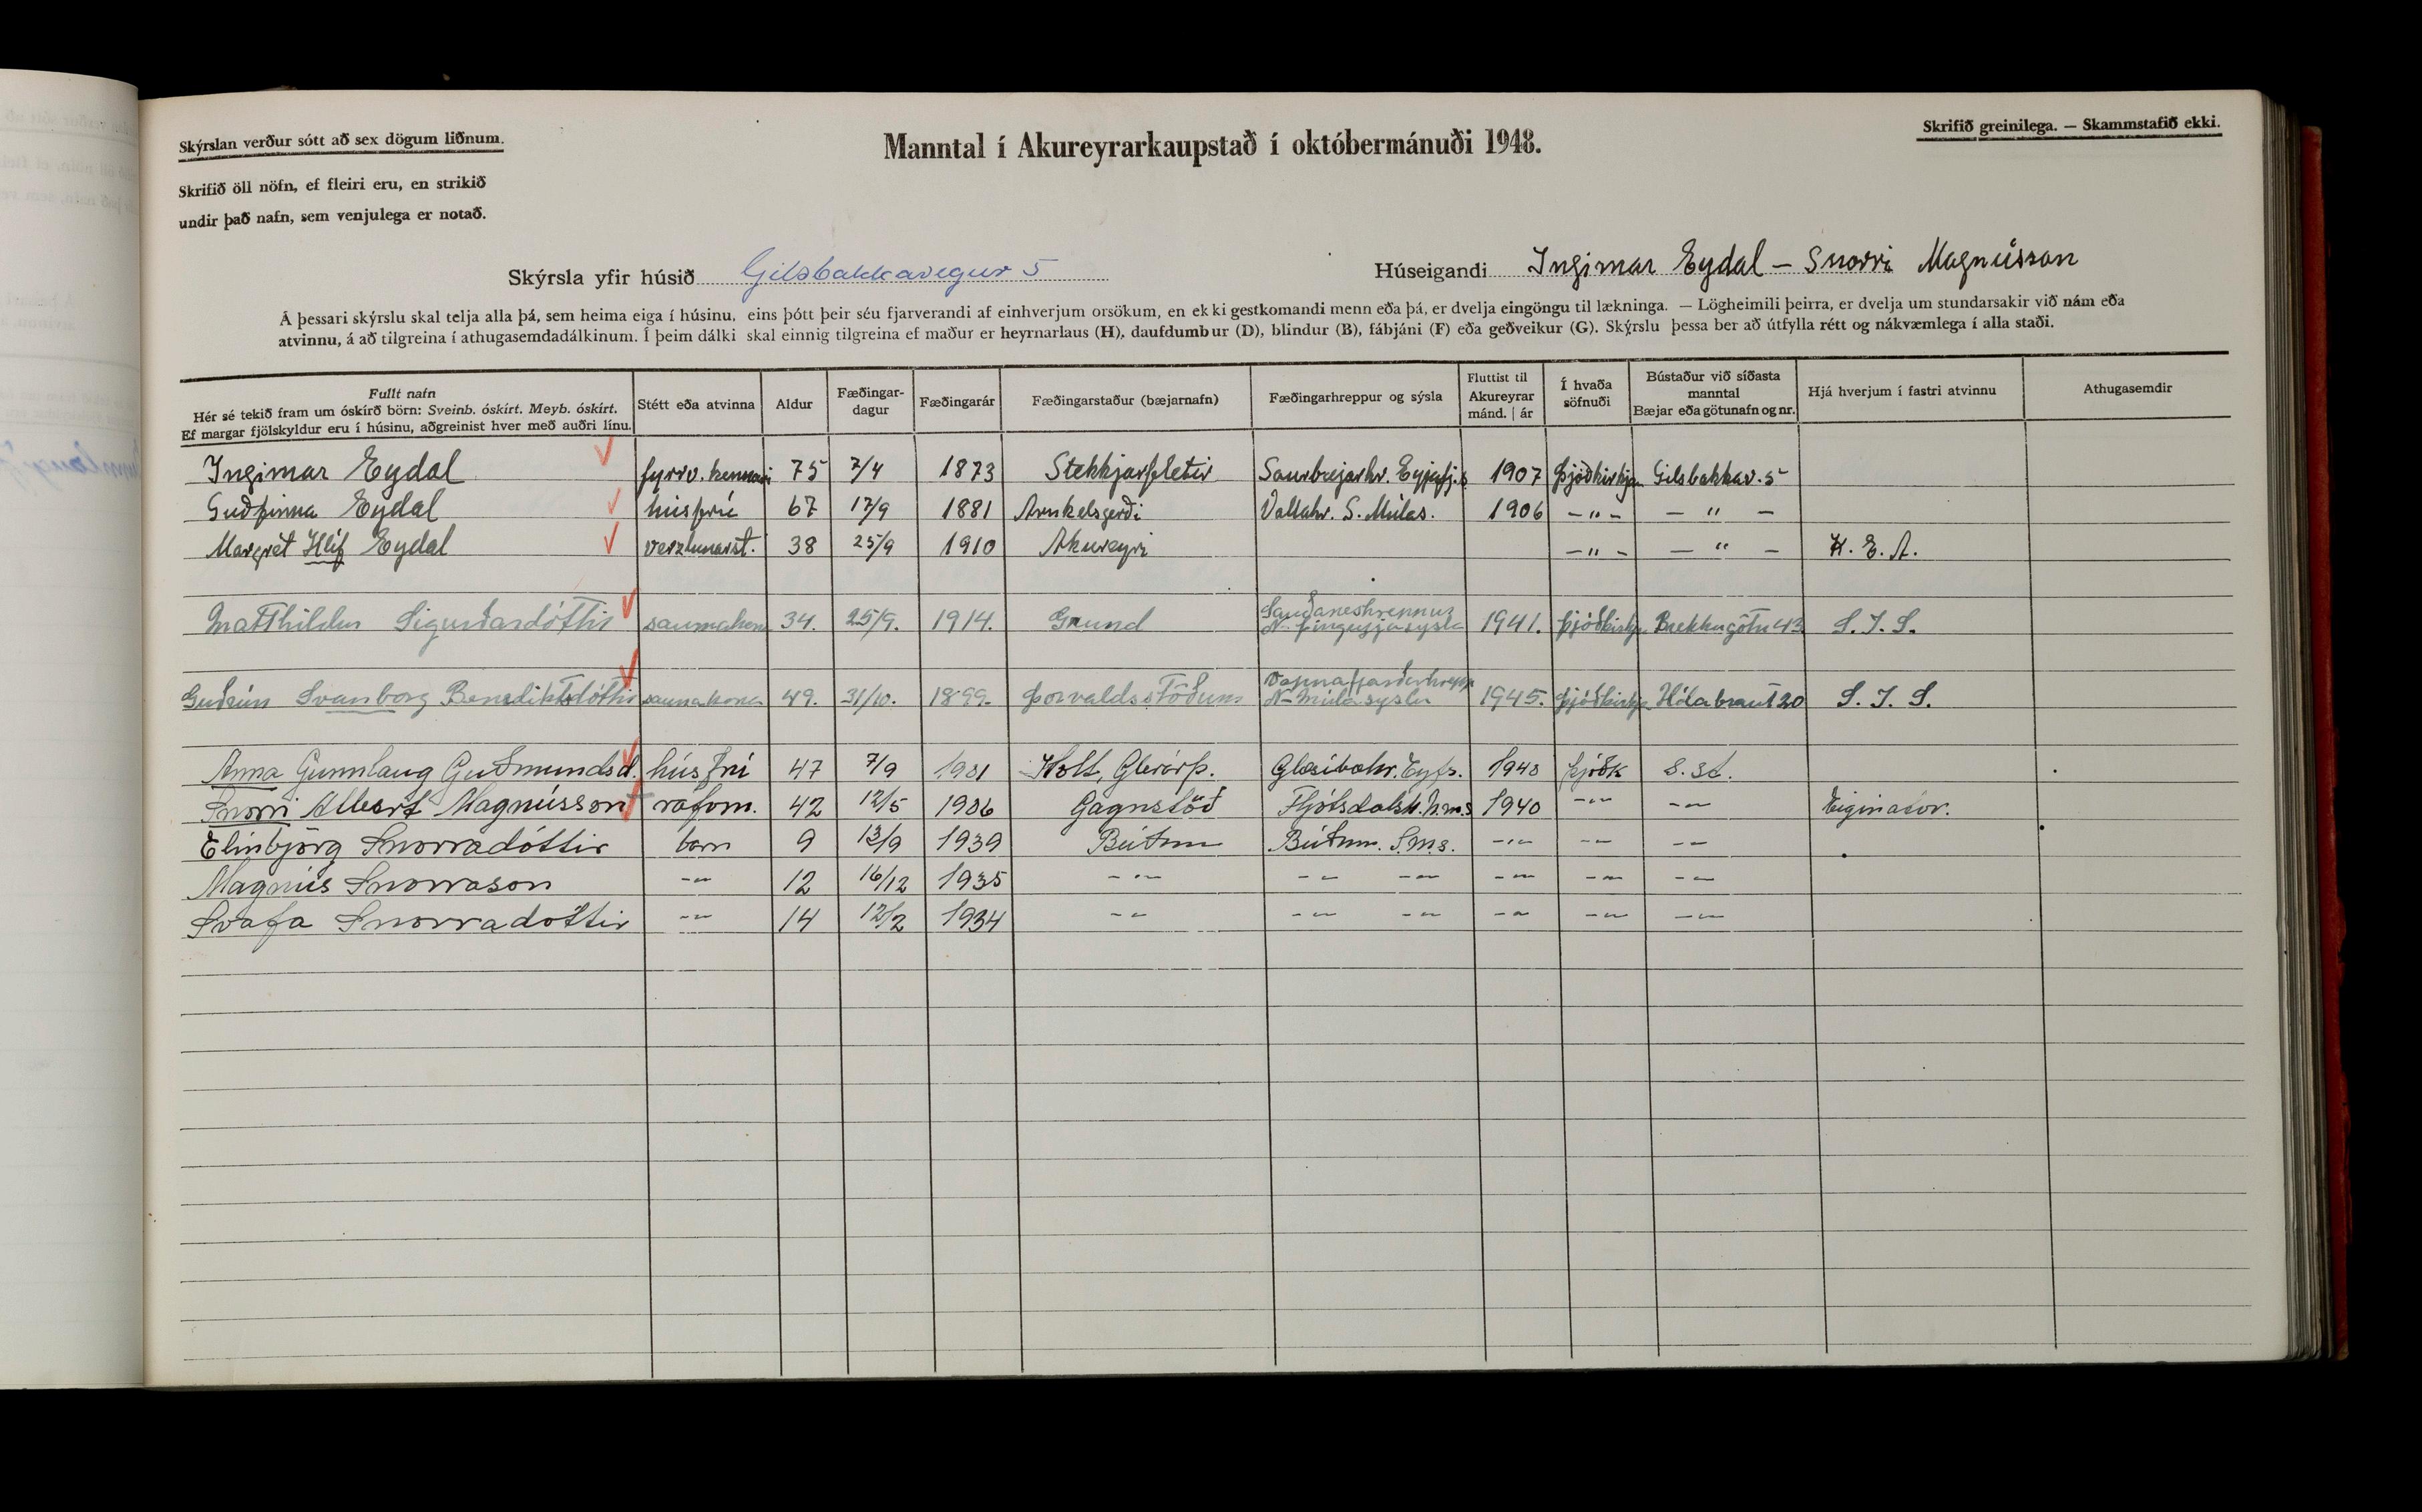 Skýrslan verður sótt að sex dögum liðnum.
Manntal í Akureyrarkaupstað í októbermánuði 1948.
Skrifið greinilega. — Skammstafið ekki.
Skrifið öll nöfn, ef fleiri eru, en strikið
undir það nafn, sem venjulega er notað.
Skýrsla yfir húsið Gilsbakkavegur 5
Húseigandi Ingimar Eydal – Snorri Magnússon
Á þessari skýrslu skal telja alla þá, sem heima eiga í húsinu, eins þótt þeir séu fjarverandi af einhverjum orsökum, en ekki gestkomandi menn eða þá, er dvelja eingöngu til lækninga. — Lögheimili þeirra, er dvelja um stundarsakir við nám eða
atvinnu, á að tilgreina í athugasemdadálkinum. Í þeim dálki skal einnig tilgreina ef maður er heyrnarlaus (H), daufdumbur (D), blindur (B), fábjáni (F) eða geðveikur (G). Skýrslu þessa ber að útfylla rétt og nákvæmlega í alla staði.
Fullt nafn
Hér sé tekið fram um óskírð börn: Sveinb. óskírt. Meyb. óskírt.
Ef margar fjölskyldur eru í húsinu, aðgreinist hver með auðri línu.
Stétt eða atvinna
Aldur
Fæðingar-
dagur
Fæðingarár
Fæðingarstaður (bæjarnafn)
Fæðingarhreppur og sýsla
Fluttist til
Akureyrar
mánd. | ár
Í hvaða
söfnuði
Bústaður við síðasta
manntal
Bæjar eða götunafn og nr.
Hjá hverjum í fastri atvinnu
Athugasemdir
Ingimar Eydal fyrrv. kennari 75 7/4 1873 Stekkjarfletir Saurbæjarhr. Eyjafj.s 1907 Þjóðkirkja Gilsbakkav. 5
Guðfinna Eydal húsfrú 67 17/9 1881 Arnkelsgerði Vallahr. S. Múlas. 1906 – " – – " –
Margrét Hlíf Eydal verzlunarst. 38 25/9 1910 Akureyri – " – – " – K. E. A.
Matthildur Sigurðardóttir saumakona 34. 25/9. 1914. Grund Sauðaneshreppur N-Þingeyjasýsla 1941. Þjóðkirkj. Brekkugötu 43 S. Í. S.
Guðrún Svanborg Benediktsdóttir saumakona 49. 31/10. 1899. Þorvaldsstöðum Vopnafjarðarhrepp N-Múlasýslu 1945. Þjóðkirkj. Hólabraut 20 S. Í. S.
Anna Gunnlaug Guðmundsd. húsfrú 47 7/9 1901 Holt, Glerárþ. Glæsibæhr. Eyfs. 1940 Þjóðk S. st.
Snorri Albert Magnússon rafvm. 42 12/5 1906 Gagnstöð Fljótsdalsh. N.m.s 1940 – " – – " –
Elinbjörg Snorradóttir barn 9 13/9 1939 Búðum Búðum. S.m.s. – " – – " – – " –
Magnús Snorrason – " – 12 16/12 1935 – " – – " – – " – – " – – " – – " –
Svafa Snorradóttir – " – 14 12/2 1934 – " – – " – – " – – " – – " – – " –